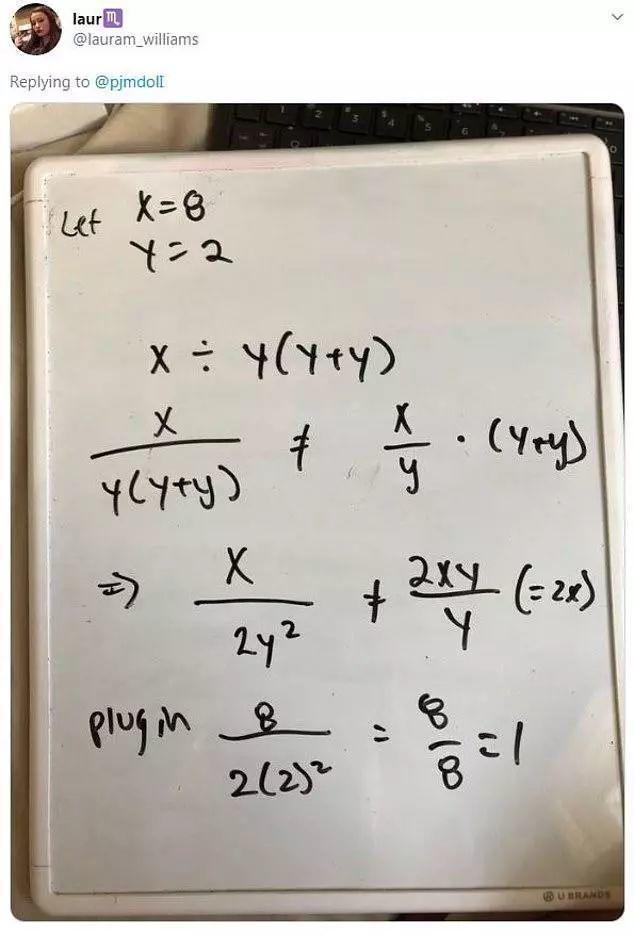 laur♏
@lauram_williams
Replying to @pjmdoll
Let X=8
Y=2
X ÷ Y(Y+Y)
X/Y(Y+Y) ≠ X/y · (Y+y)
=> X/2y² ≠ 2XY/Y (=2x)
plug in 8/2(2)² = 8/8 = 1
U BRANDS